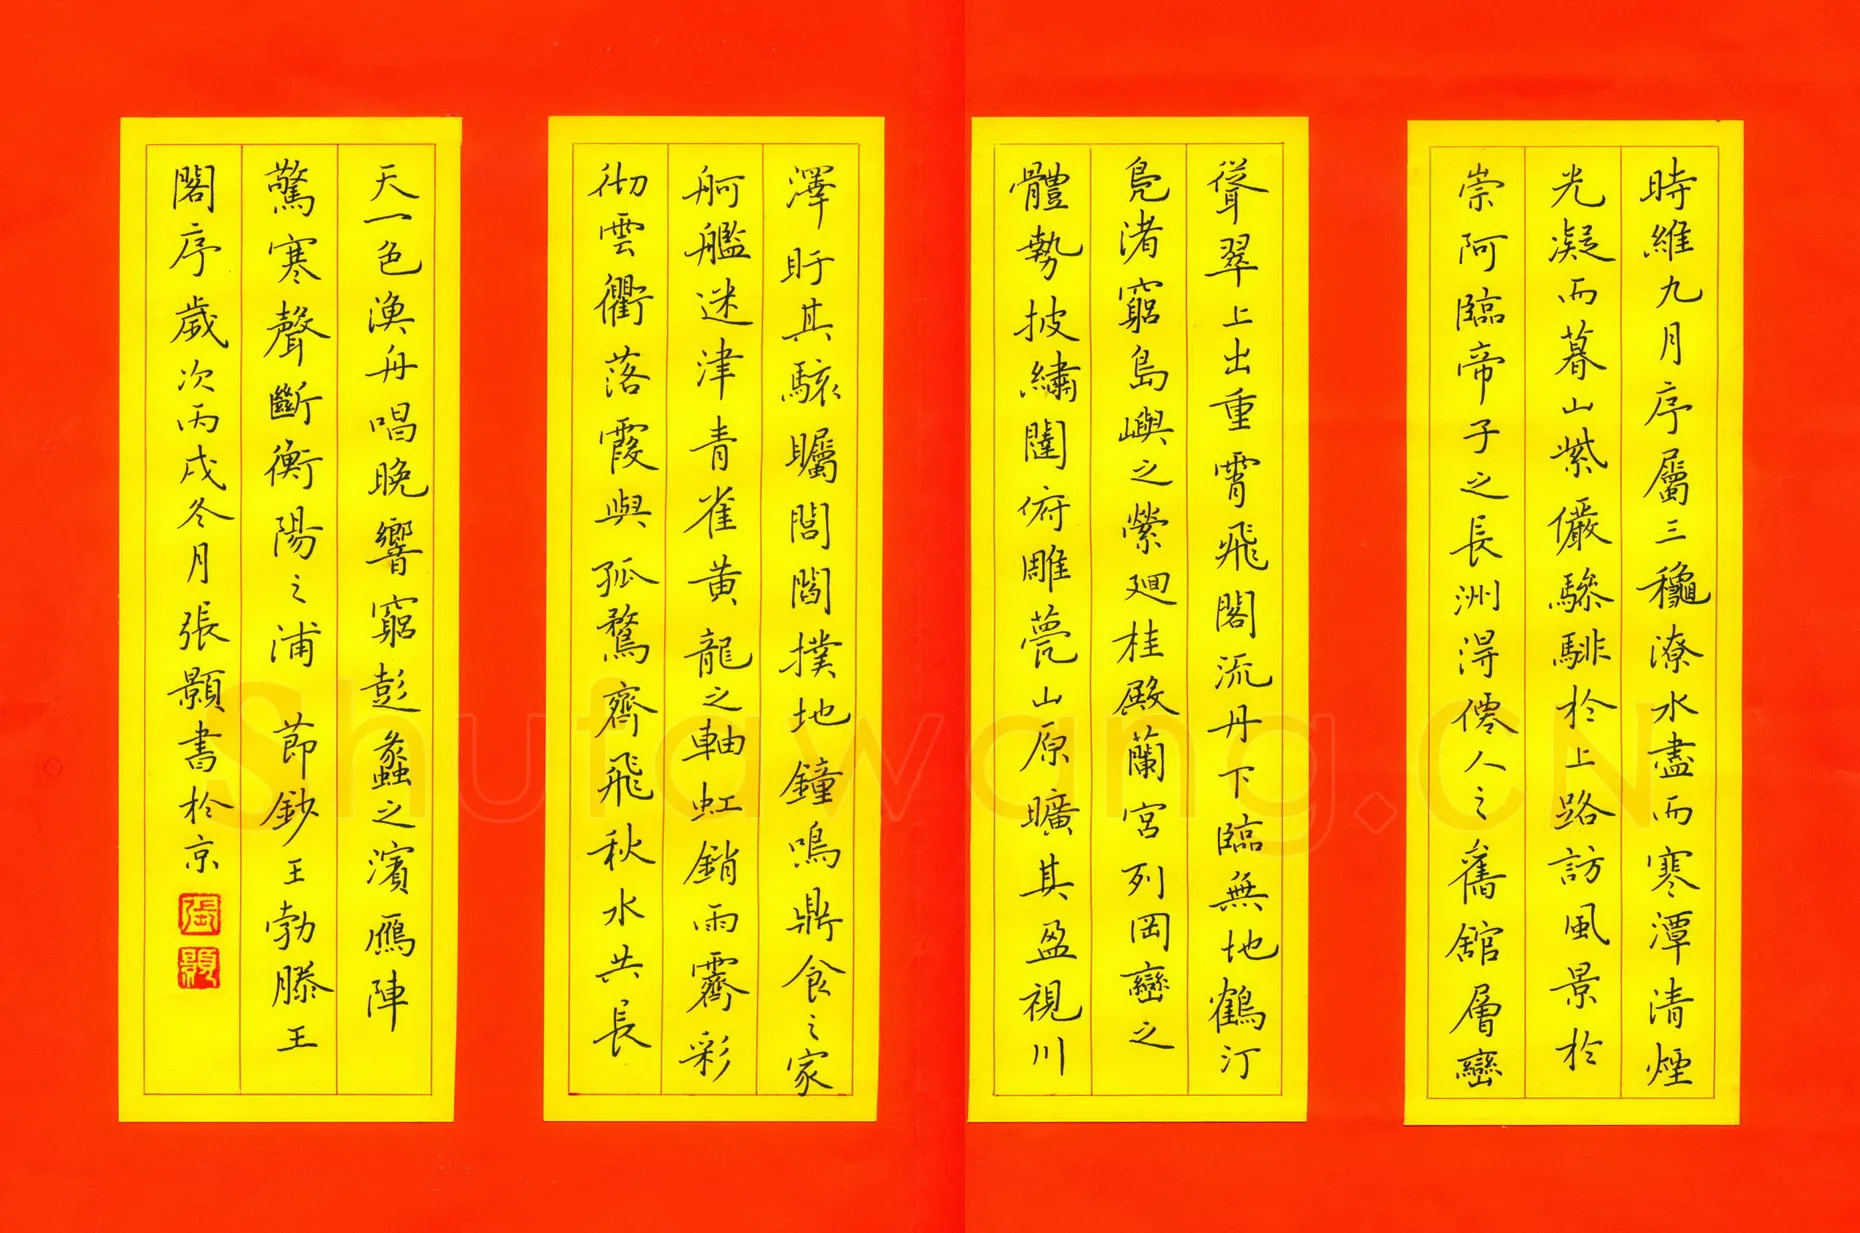 時維九月序屬三龝潦水盡而寒潭清煙
光凝而暮山紫儼驂騑於上路訪風景於
崇阿臨帝子之長洲淂僊人之舊舘層巒
聳翠上出重霄飛閣流丹下臨無地鶴汀
鳧渚窮島嶼之縈廻桂殿蘭宮列岡巒之
體勢披繡闥俯雕甍山原曠其盈視川
澤盱其駭矚閭閻撲地鐘鳴鼎食之家
舸艦迷津青雀黃龍之軸虹銷雨霽彩
彻雲衢落霞與孤鶩齊飛秋水共長
天一色漁舟唱晚響窮彭蠡之濱雁陣
驚寒聲斷衡陽之浦 莭鈔王勃滕王
閣序歲次丙戌冬月張顥書於京
張
顥
Shufawang.CN